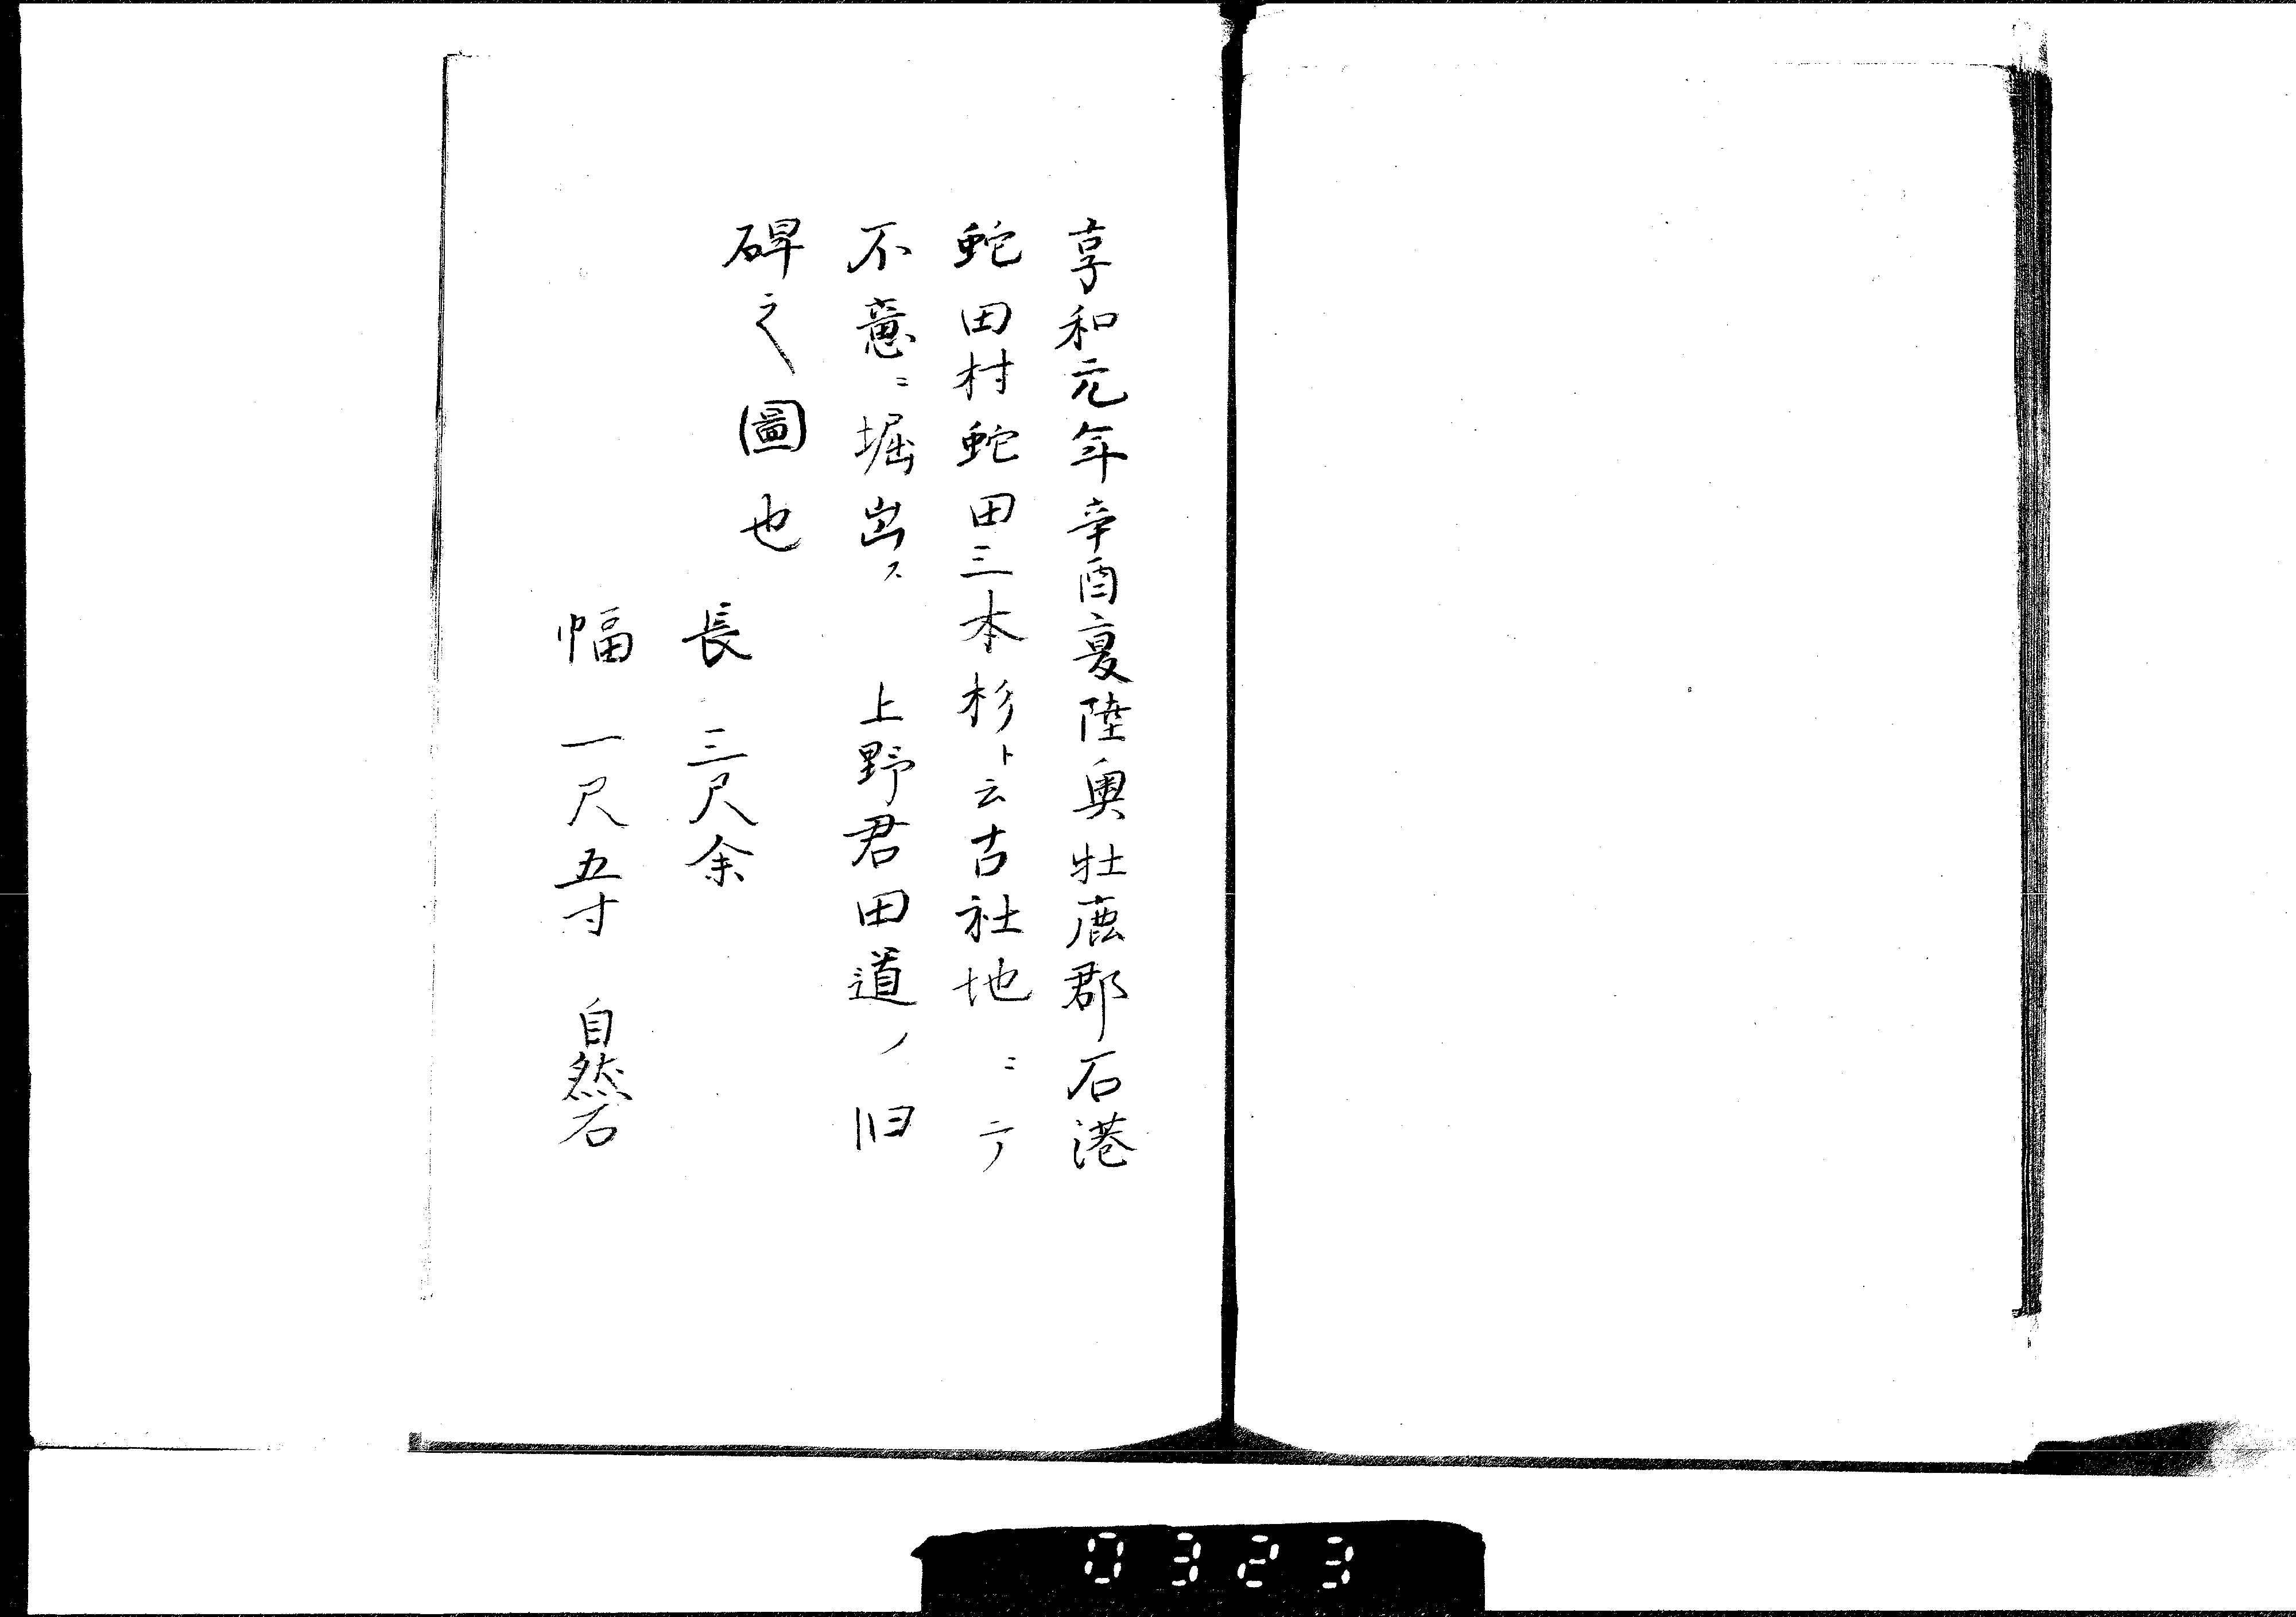 享和元年辛酉夏陸奥牡鹿郡石港
蛇田村蛇田三本杉ト云古社地ニテ
不意ニ堀出ス　上野君田道ノ旧
碑之圖也
長　三尺余
幅　一尺五寸　自然石
0323